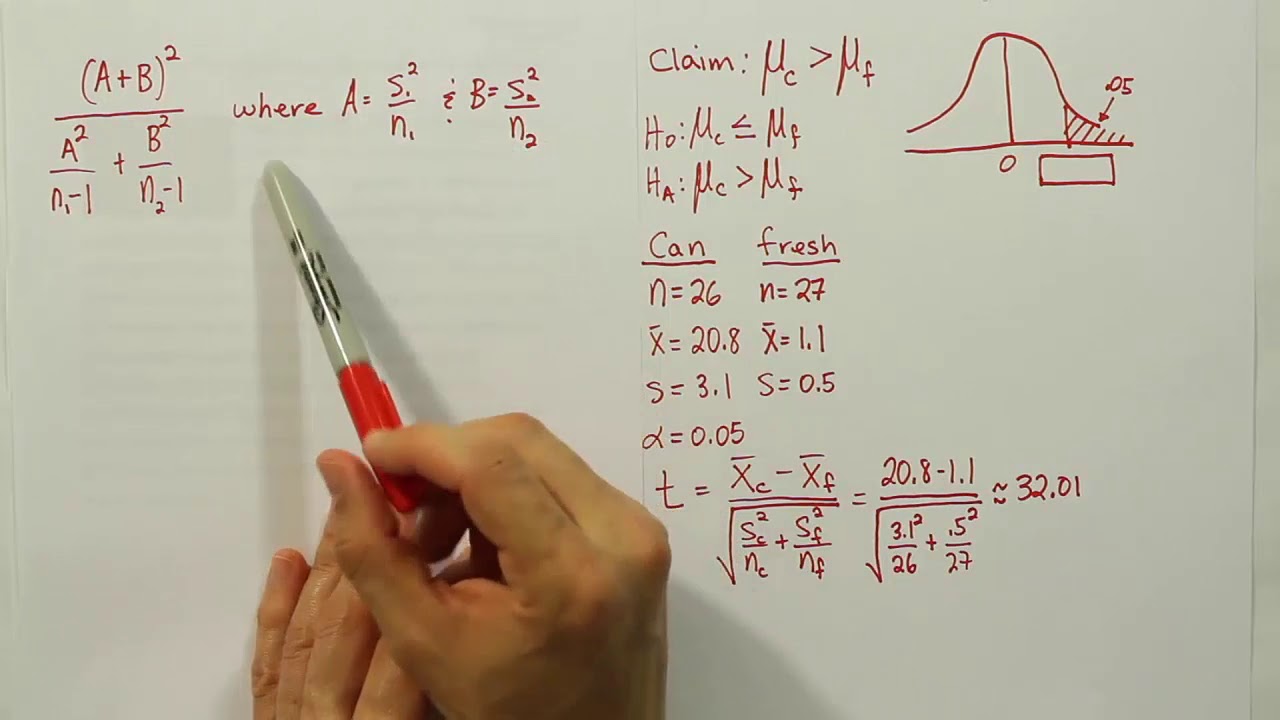 (A+B)²
A²/n₁-1 + B²/n₂-1
where A = s₁²/n₁ & B = s₂²/n₂
Claim: μc > μf
H₀: μc ≤ μf
H_A: μc > μf
.05
0
Can fresh
n = 26 n = 27
x̄ = 20.8 x̄ = 1.1
s = 3.1 s = 0.5
α = 0.05
t = (x̄c - x̄f)/√(sc²/nc + sf²/nf) = (20.8-1.1)/√(3.1²/26 + .5²/27) ≈ 32.01